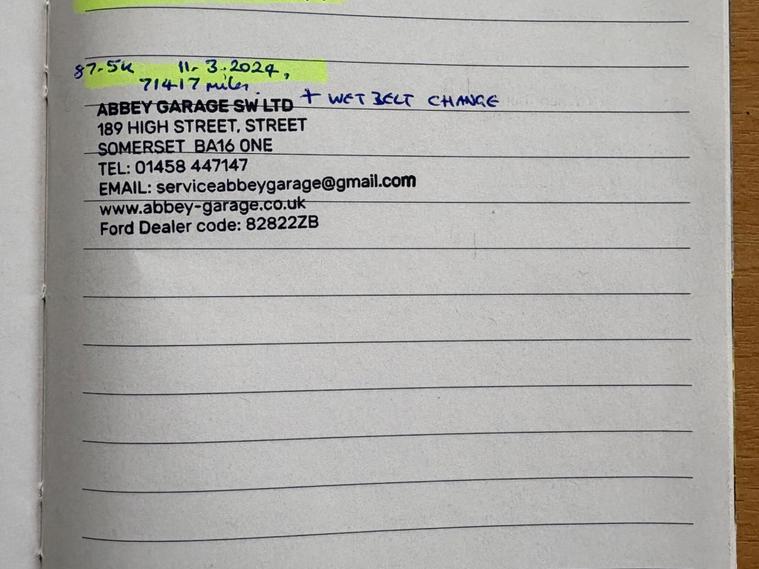 87.5K 11.3.2024,
71417 miles.
+ WET BELT CHANGE
ABBEY GARAGE SW LTD
189 HIGH STREET, STREET
SOMERSET BA16 0NE
TEL: 01458 447147
EMAIL: serviceabbeygarage@gmail.com
www.abbey-garage.co.uk
Ford Dealer code: 82822ZB